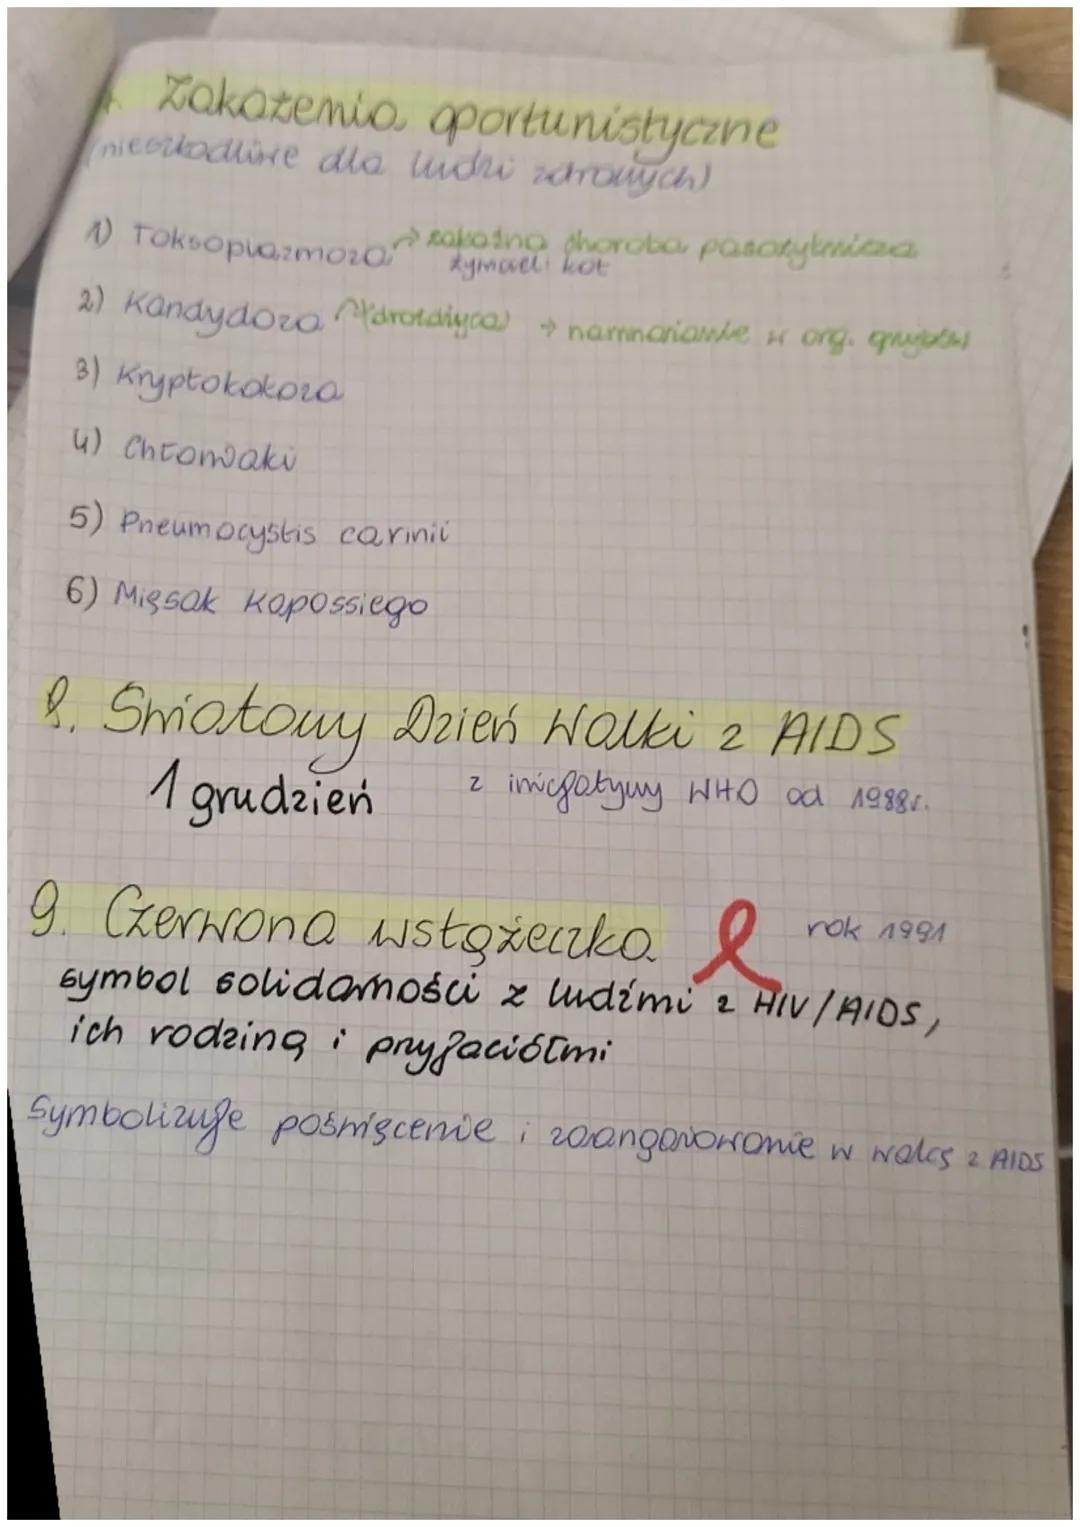 Zakażenia oportunistyczne
(nieszkodliwe dla ludzi zdrowych)
1) Toksoplazmoza → zakaźna choroba pasożytnicza
żywiciel: kot
2) Kandydoza (drożdżyca) → namnażanie w org. grzybów
3) Kryptokokoza
4) Chłoniaki
5) Pneumocystis carinii
6) Mięsak Kapossiego
8. Światowy Dzień Walki z AIDS
1 grudzień z inicjatywy WHO od 1988r.
9. Czerwona wstążeczka rok 1991
symbol solidarności z ludźmi z HIV/AIDS,
ich rodziną i przyjaciółmi
Symbolizuje poświęcenie i zaangażowanie w walkę z AIDS